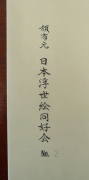 頒布元 日本浮世絵同好会
No.